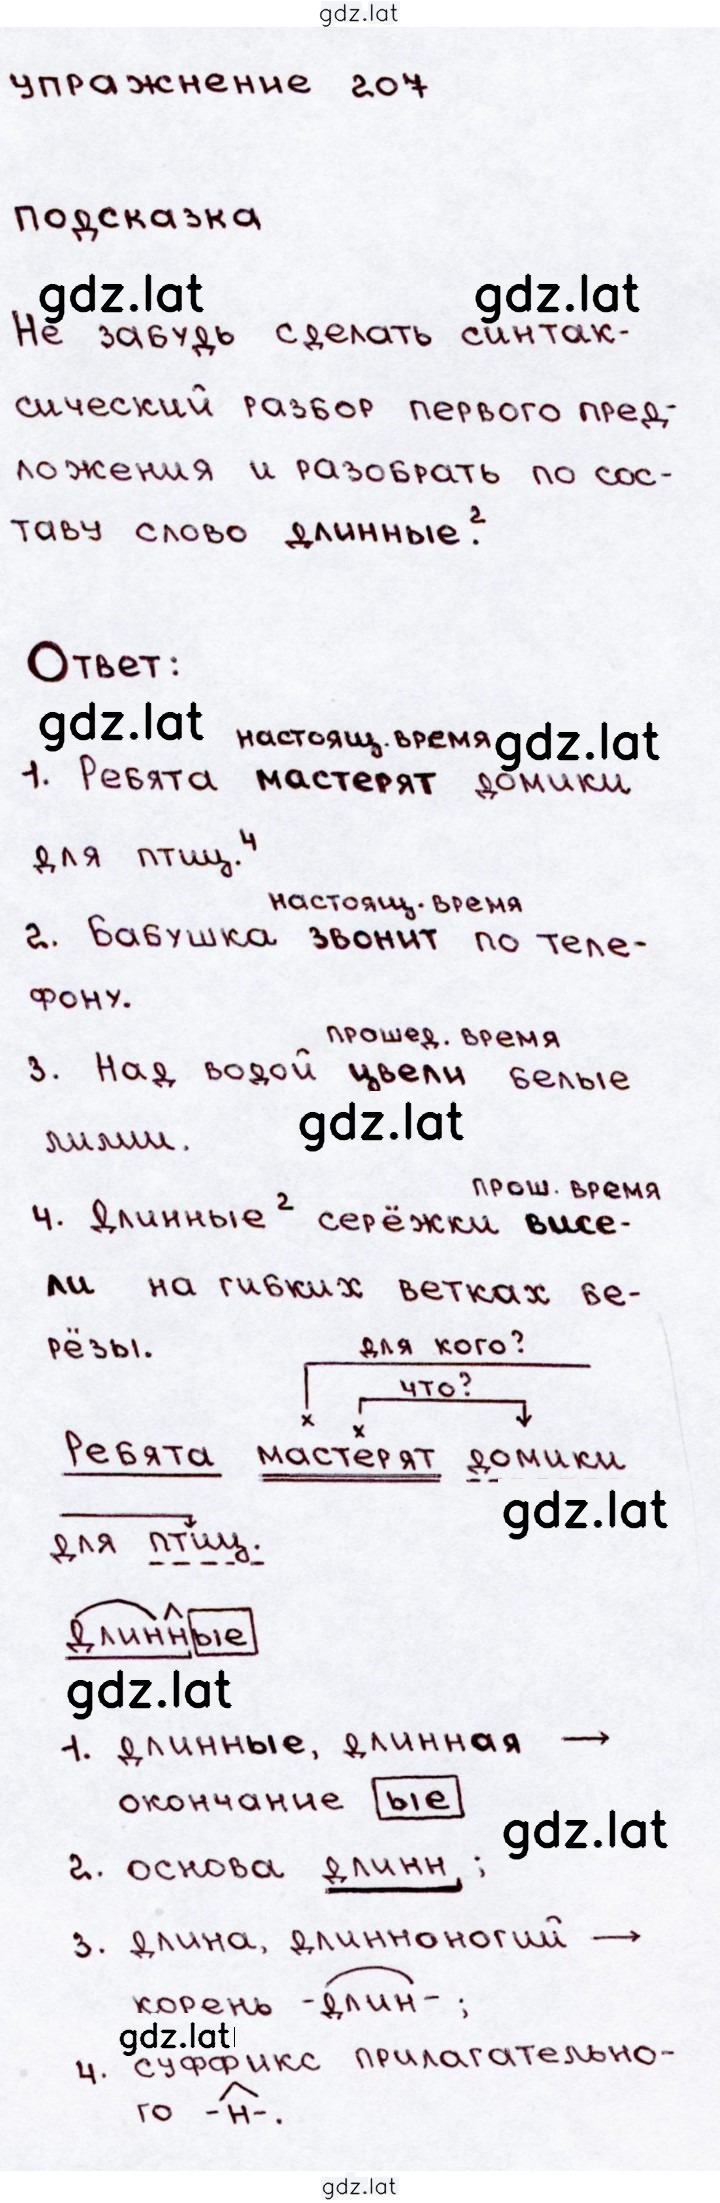 gdz.lat
упражнение 207
подсказка
gdz.lat gdz.lat
Не забудь сделать синтак-
сический разбор первого пред-
ложения и разобрать по сос-
таву слово длинные².
Ответ:
gdz.lat настоящ. время gdz.lat
1. Ребята мастерят домики
для птиц.⁴
настоящ. время
2. Бабушка звонит по теле-
фону.
прошед. время
3. Над водой цвели белые
gdz.lat
лилии.
прош. время
4. Длинные² серёжки висе-
ли на гибких ветках бе-
рёзы. для кого?
что?
х х
Ребята мастерят домики
gdz.lat
для птиц.
длинные
gdz.lat
1. длинные, длинная →
окончание ые
gdz.lat
2. основа длинн ;
3. длина, длинноногий →
корень -длин- ;
gdz.lat
4. суффикс прилагательно-
го -н-.
gdz.lat